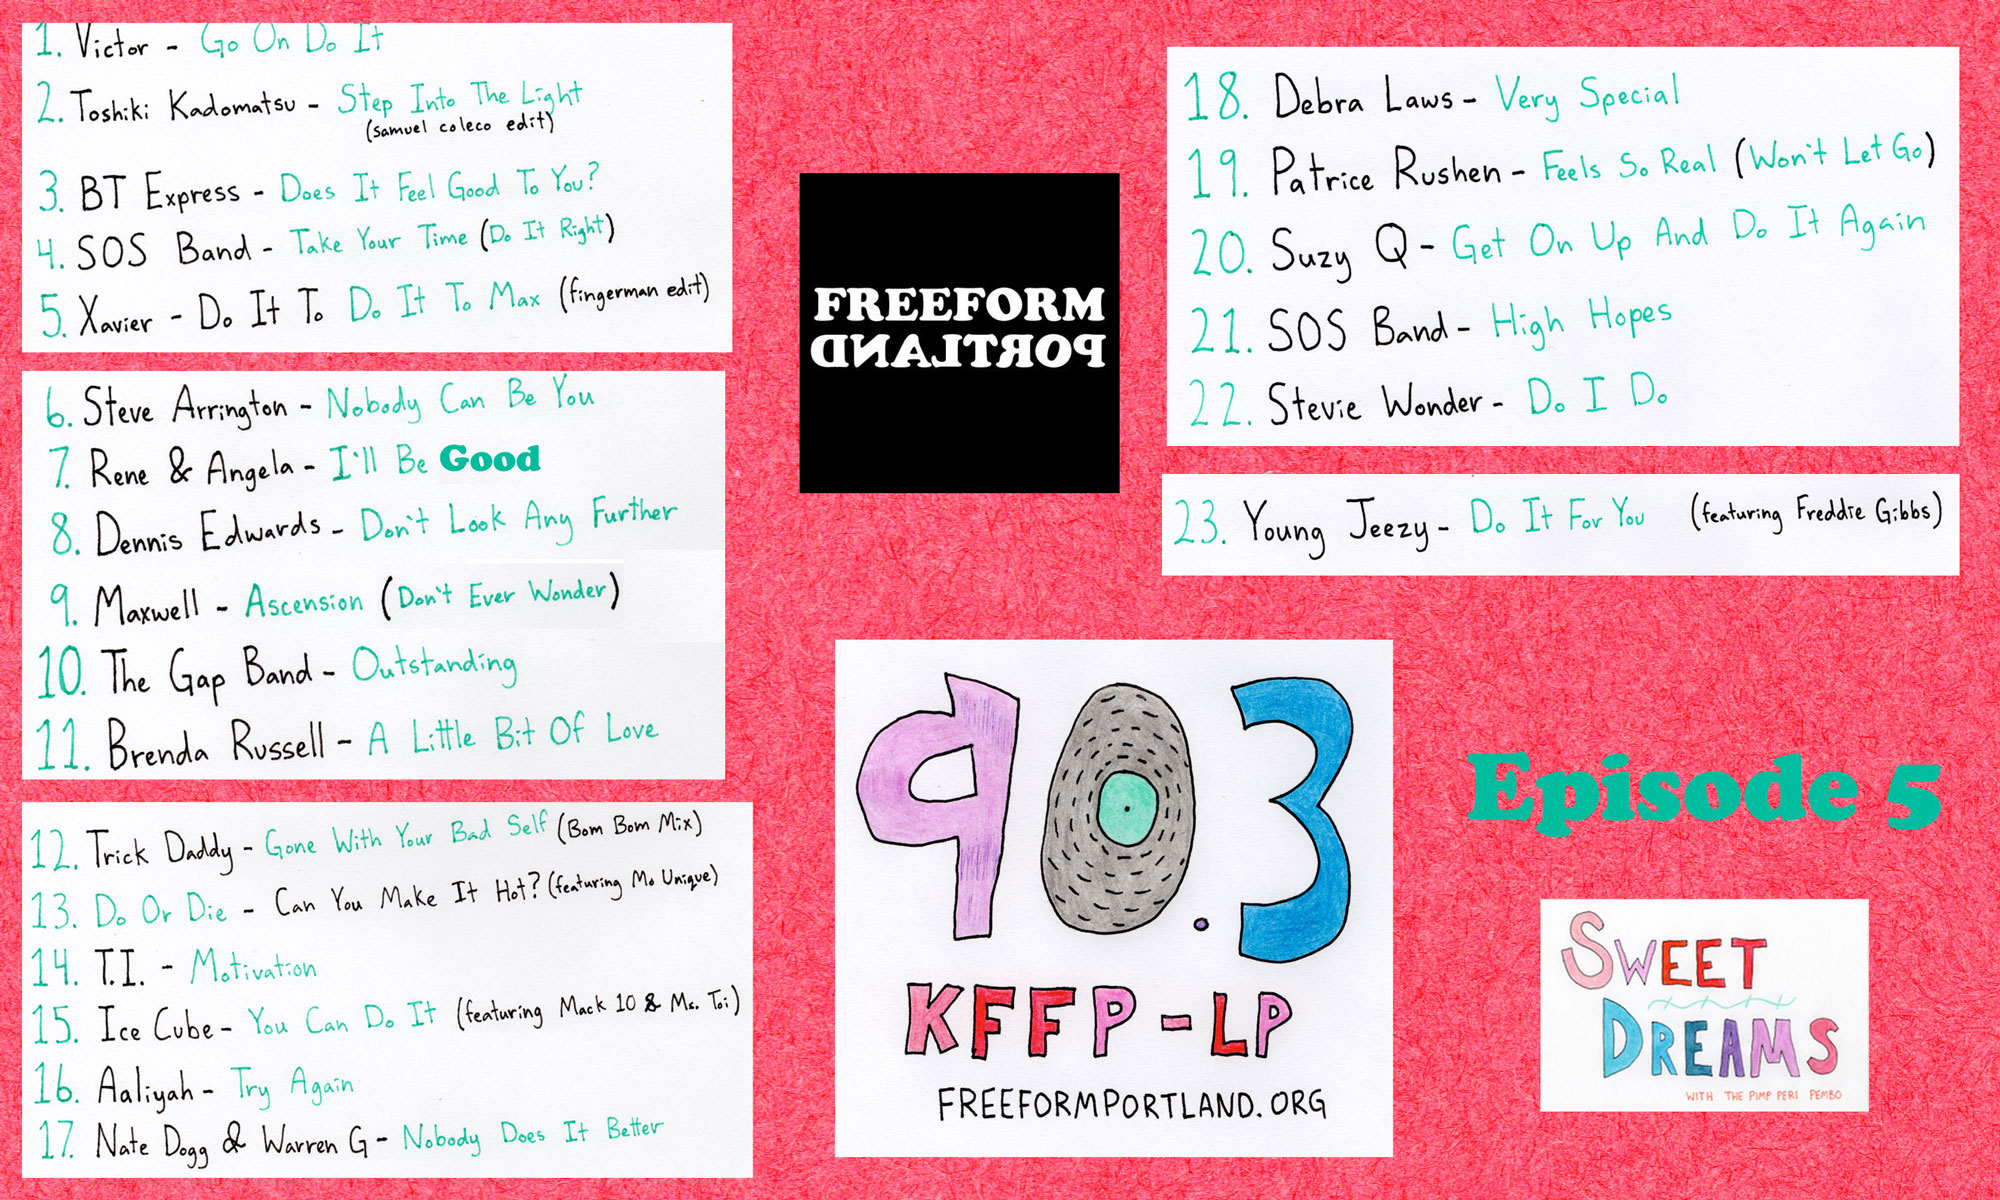 1. Victor - Go On Do It
2. Toshiki Kadomatsu - Step Into The Light
(samuel coleco edit)
3. BT Express - Does It Feel Good To You?
4. SOS Band - Take Your Time (Do It Right)
5. Xavier - Do It To Do It To Max (fingerman edit)
6. Steve Arrington - Nobody Can Be You
7. Rene & Angela - I'll Be Good
8. Dennis Edwards - Don't Look Any Further
9. Maxwell - Ascension (Don't Ever Wonder)
10. The Gap Band - Outstanding
11. Brenda Russell - A Little Bit Of Love
12. Trick Daddy - Gone With Your Bad Self (Bom Bom Mix)
13. Do Or Die - Can You Make It Hot? (featuring Mo Unique)
14. T.I. - Motivation
15. Ice Cube - You Can Do It (featuring Mack 10 & Ms. Toi)
16. Aaliyah - Try Again
17. Nate Dogg & Warren G - Nobody Does It Better
FREEFORM
PORTLAND
18. Debra Laws - Very Special
19. Patrice Rushen - Feels So Real (Won't Let Go)
20. Suzy Q - Get On Up And Do It Again
21. SOS Band - High Hopes
22. Stevie Wonder - Do I Do
23. Young Jeezy - Do It For You (featuring Freddie Gibbs)
90.3
KFFP-LP
FREEFORMPORTLAND.ORG
Episode 5
SWEET
DREAMS
WITH THE PIMP PERI PEMBO